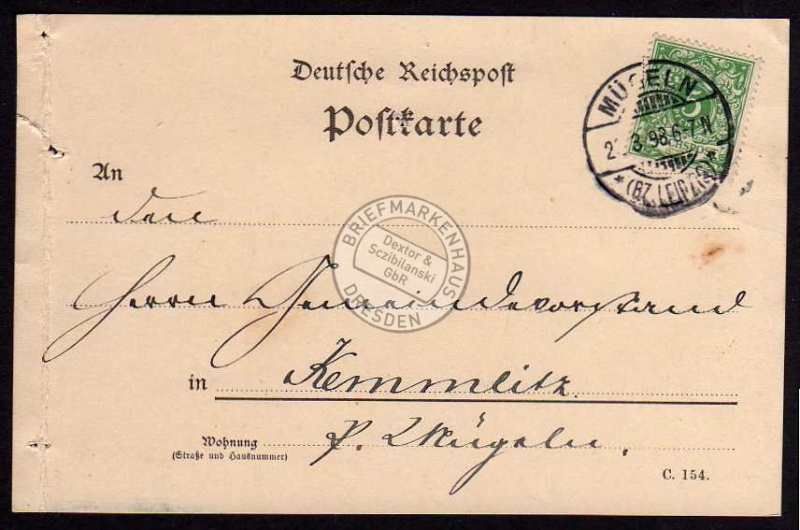 Deutsche Reichspost
Postkarte
MÜGELN
3.98.6-7N.
* (BZ. LEIPZIG) *
An
den
BRIEFMARKENHAUS
Dextor &
Sczibilanski
GbR
DRESDEN
Herrn Gemeindevorstand
in Kemmlitz
p. Mügeln.
Wohnung
(Straße und Hausnummer)
C. 154.